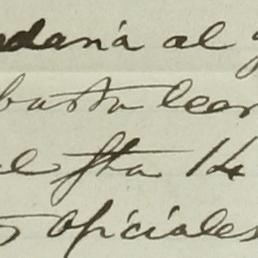 daría al
basta leer
el fta 14
oficiales